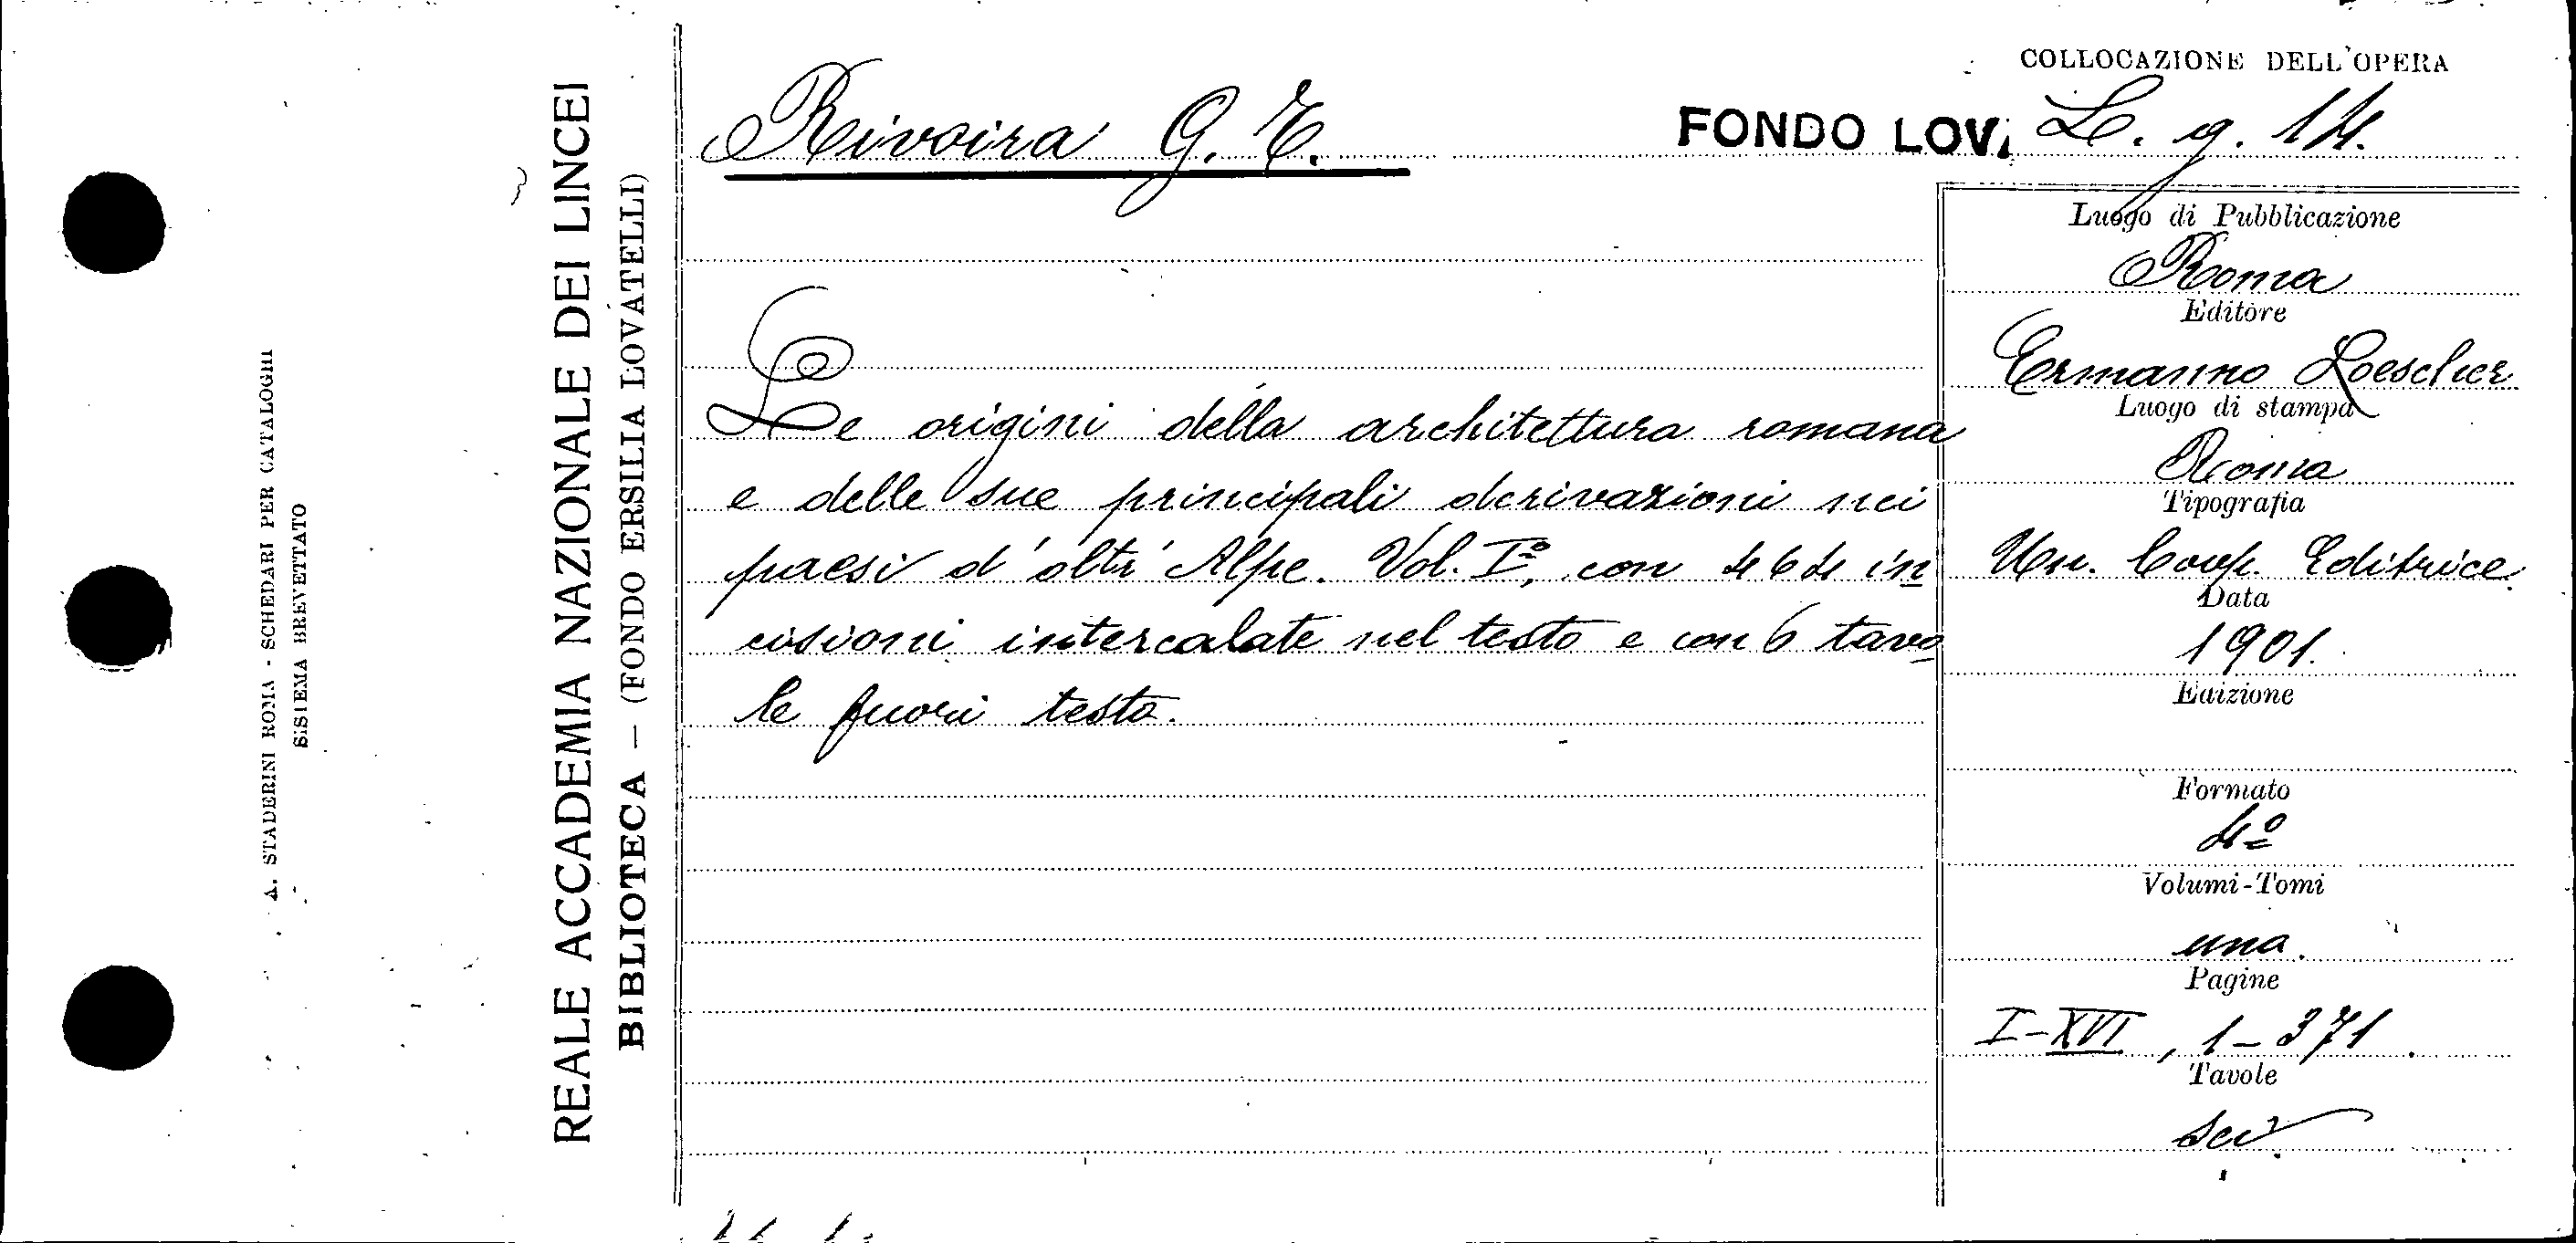 A. STADERINI ROMA - SCHEDARI PER CATALOGHI
SISTEMA BREVETTATO
REALE ACCADEMIA NAZIONALE DEI LINCEI
BIBLIOTECA – (FONDO ERSILIA LOVATELLI)
COLLOCAZIONE DELL'OPERA
Rivoira G. T. FONDO LOV. L. g. 14.
Le origini della architettura romana
e delle sue principali derivazioni nei
paesi d'oltr'Alpe. Vol. Iº, con 464 in
cisioni intercalate nel testo e con 6 tavo
le fuori testo.
Luogo di Pubblicazione
Roma
Editore
Ermanno Loescher
Luogo di stampa
Roma
Tipografia
Un. Coop. Editrice.
Data
1901.
Edizione
Formato
4º
Volumi-Tomi
uno.
Pagine
I-XVI, 1-371.
Tavole
sei